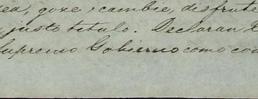 ea, goze, cambie, disfrute
justo titulo. Declaran
Supremo Gobierno como